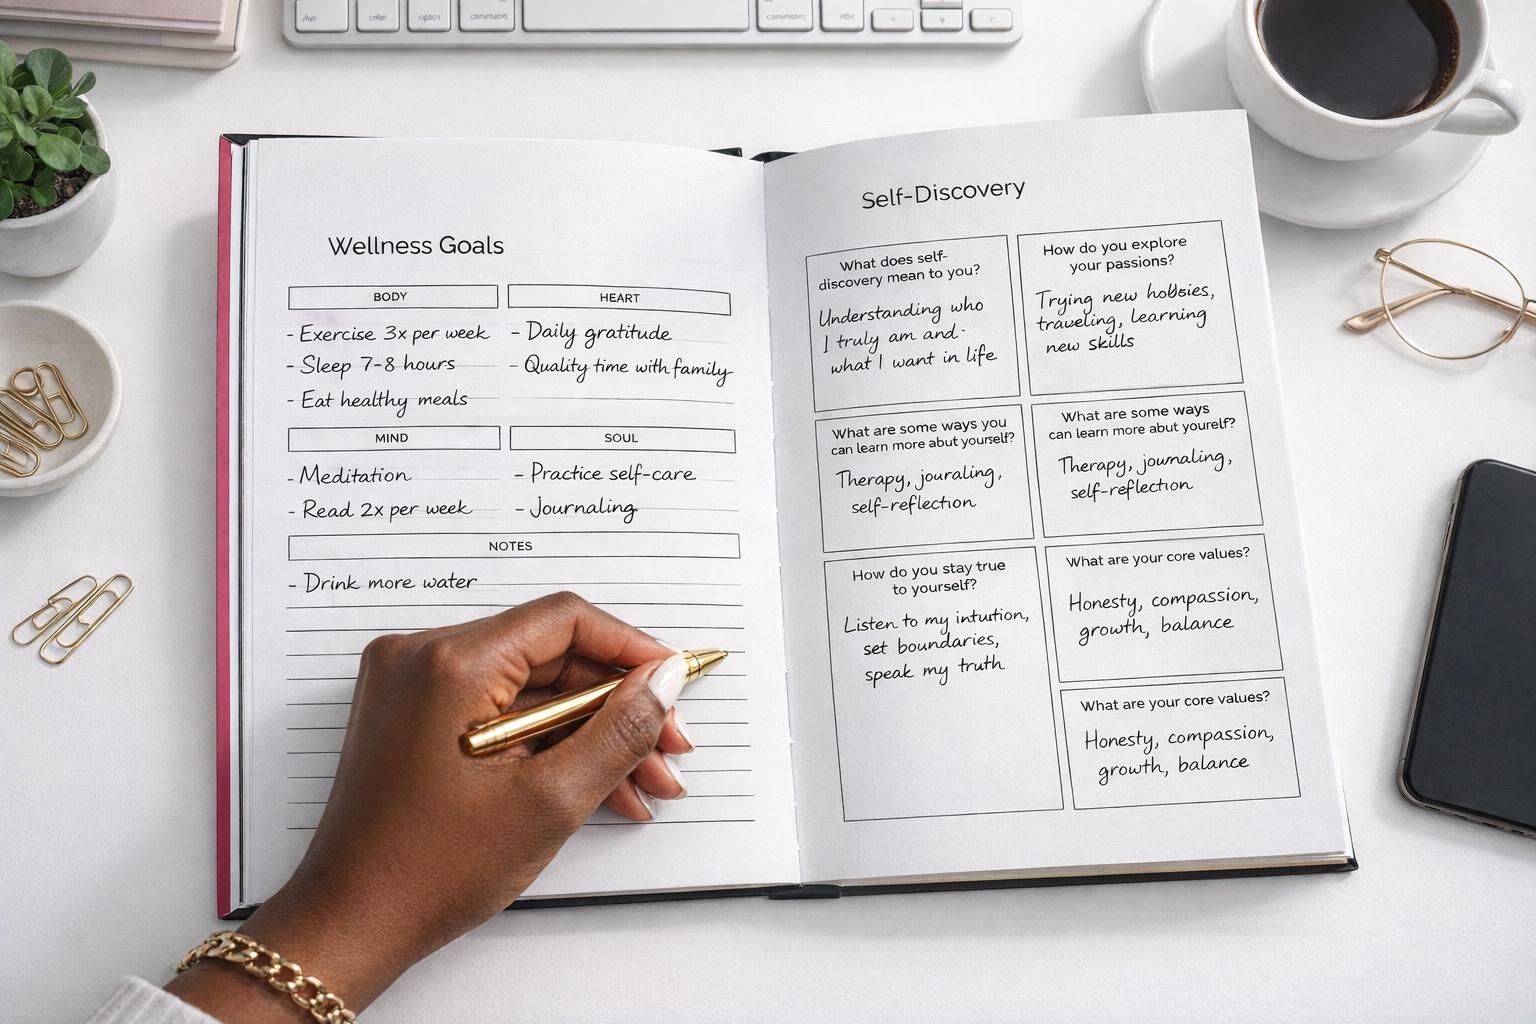 Wellness Goals
BODY
- Exercise 3x per week
- Sleep 7-8 hours
- Eat healthy meals
HEART
- Daily gratitude
- Quality time with family
MIND
- Meditation
- Read 2x per week
SOUL
- Practice self-care
- Journaling
NOTES
- Drink more water
Self-Discovery
What does self-
discovery mean to you?
Understanding who
I truly am and
what I want in life
How do you explore
your passions?
Trying new hobbies,
traveling, learning
new skills
What are some ways you
can learn more abut yourself?
Therapy, jouraling,
self-reflection
What are some ways
can learn more abut yourelf?
Therapy, journaling,
self-reflection
How do you stay true
to yourself?
Listen to my intuition,
set boundaries,
speak my truth
What are your core values?
Honesty, compassion,
growth, balance
What are your core values?
Honesty, compassion,
growth, balance